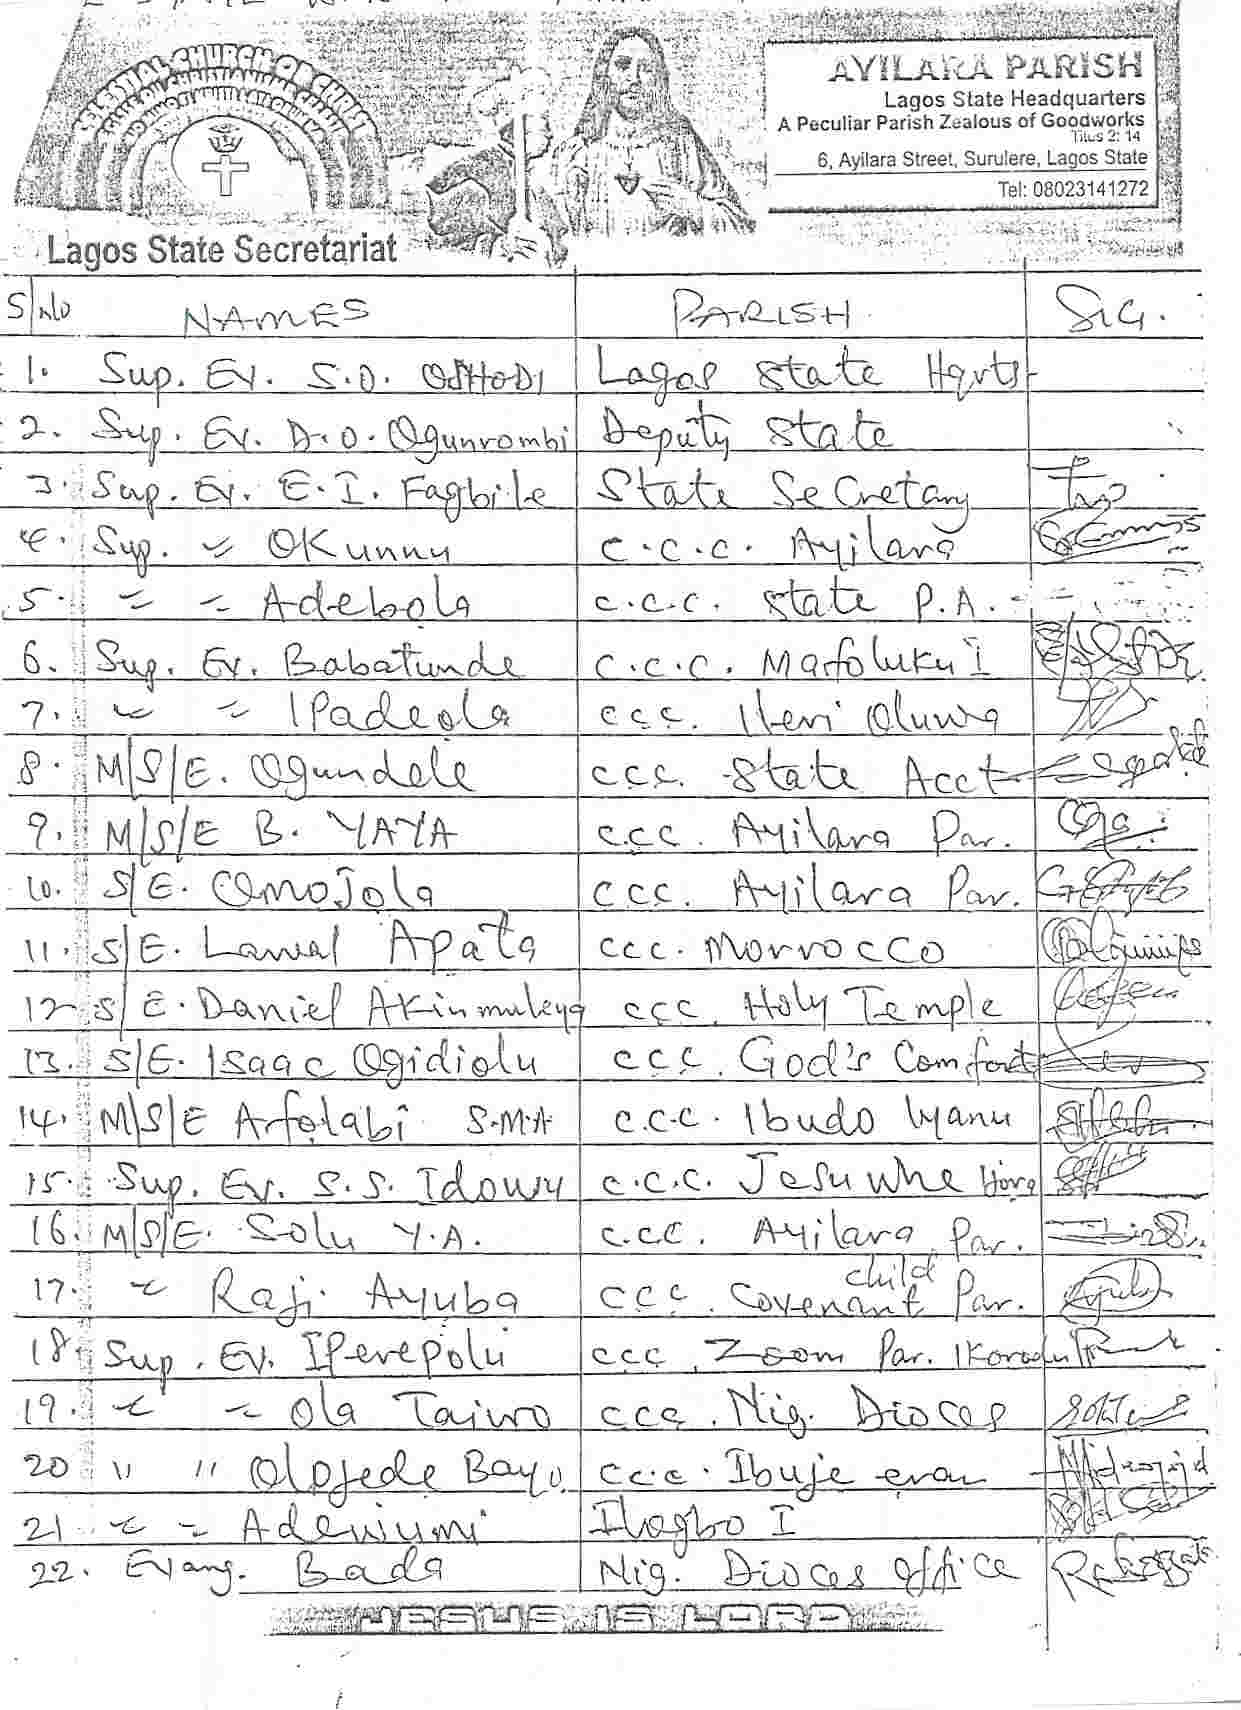 CELESTIAL CHURCH OF CHRIST
AYILARA PARISH
Lagos State Headquarters
A Peculiar Parish Zealous of Goodworks
Titus 2: 14
6, Ayilara Street, Surulere, Lagos State
Tel: 08023141272
Lagos State Secretariat
S/No NAMES PARISH SIG.
1. Sup. Ev. S.O. OSHODI Lagos State Hqrts
2. Sup. Ev. D.O. Ogunrombi Deputy State
3. Sup. Ev. E.I. Fagbile State Secretary
4. Sup. " OKunnu C.C.C. Ayilara
5. " " Adebola C.C.C. State P.A.
6. Sup. Ev. Babatunde C.C.C. Mafoluku I
7. " " IPadeola CCC. Ileri Oluwa
8. M/S/E. Ogundele CCC. State Acct
9. M/S/E B. YAYA C.CC. Ayilara Par.
10. S/E. OmoJola CCC. Ayilara Par.
11. S/E. Lawal Apata CCC. Morrocco
12 S/E. Daniel Akinmuleya CCC. Holy Temple
13. S/E. Isaac Ogidiolu CCC. God's Comfort
14. M/S/E Afolabi S.M.A C.C.C. Ibudo Iyanu
15. Sup. Ev. S.S. Idowu C.C.C. Jesu Whe
16. M/S/E. Solu Y.A. C.CC. Ayilara Par.
17. " Raji Ayuba CCC. Covenant child Par.
18. Sup. Ev. IPerepolu CCC. Zoom Par. Ikorodu
19. " " Ola Taiwo CCC. Nig. Dioces
20 " " Olojede Bayo CC.C. Ibuje eran
21 " " Adewumi Ilogbo I
22. Evang. Bada Nig. Dioces Office
JESUS IS LORD